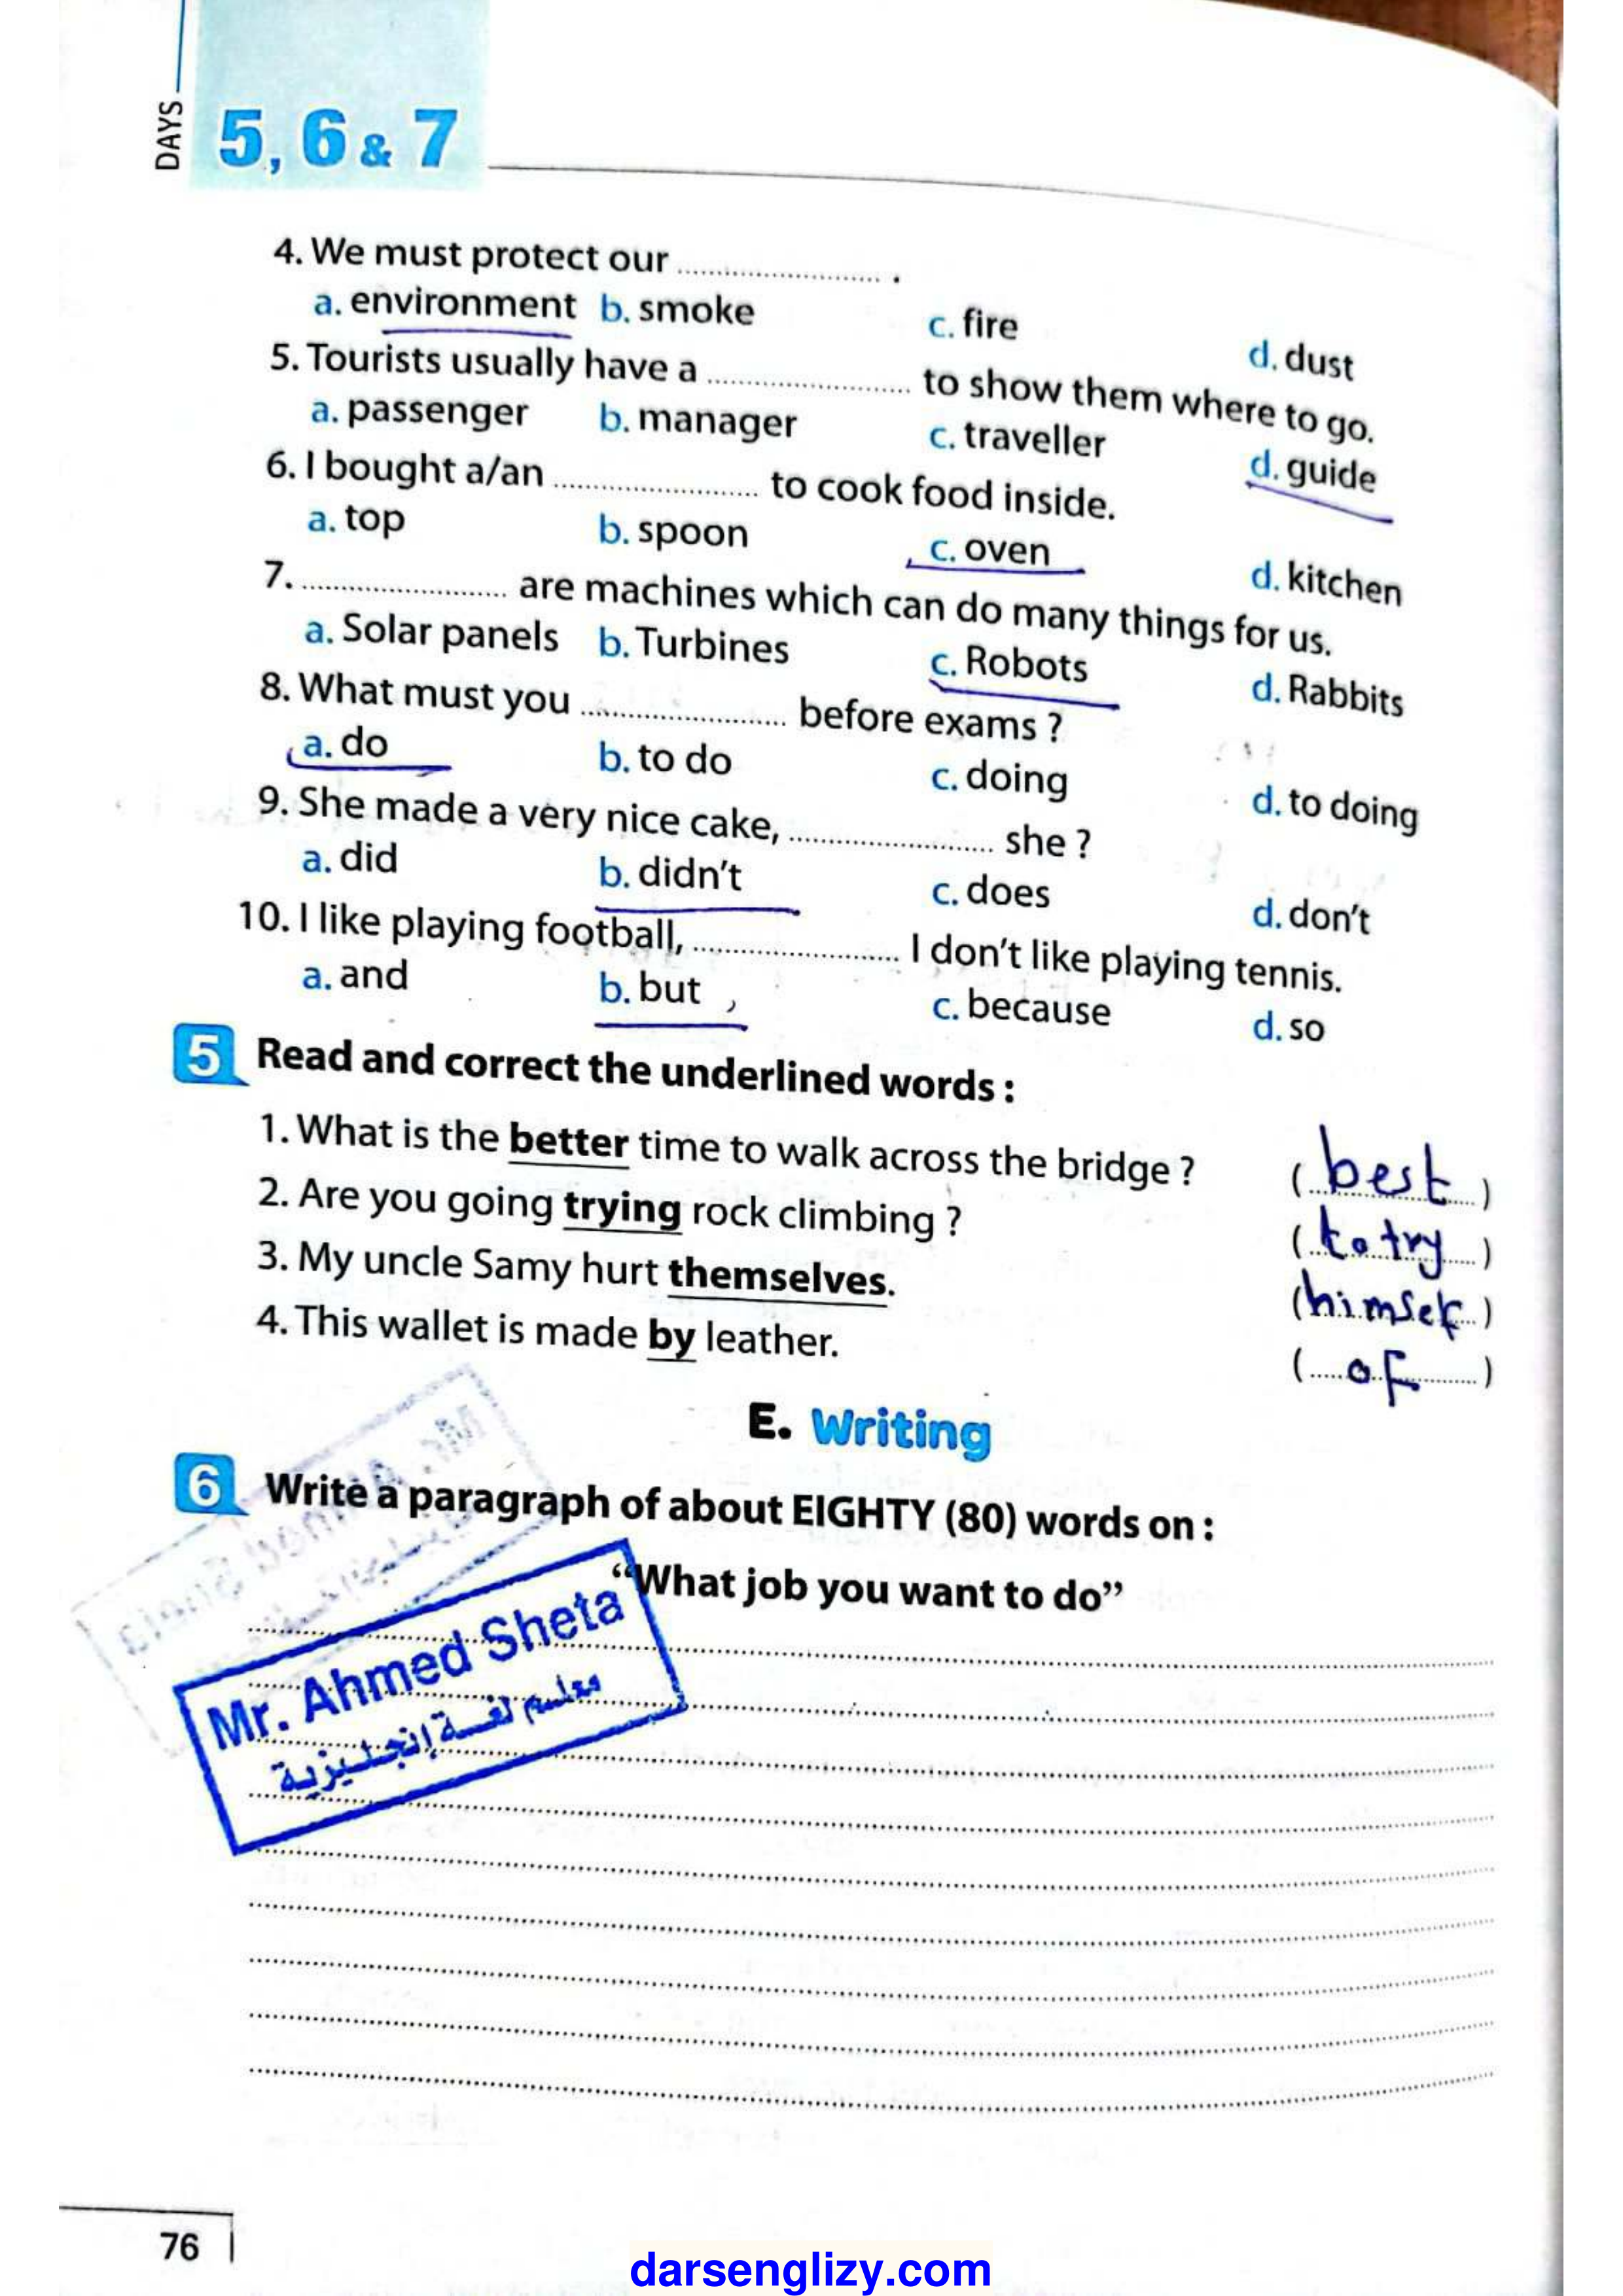 DAYS
5, 6 & 7
4. We must protect our ........................ .
a. environment b. smoke c. fire d. dust
5. Tourists usually have a ........................ to show them where to go.
a. passenger b. manager c. traveller d. guide
6. I bought a/an ........................ to cook food inside.
a. top b. spoon c. oven d. kitchen
7. ........................ are machines which can do many things for us.
a. Solar panels b. Turbines c. Robots d. Rabbits
8. What must you ........................ before exams ?
a. do b. to do c. doing d. to doing
9. She made a very nice cake, ........................ she ?
a. did b. didn't c. does d. don't
10. I like playing football, ........................ I don't like playing tennis.
a. and b. but c. because d. so
5 Read and correct the underlined words :
1. What is the better time to walk across the bridge ? (best)
2. Are you going trying rock climbing ? (to try)
3. My uncle Samy hurt themselves. (himself)
4. This wallet is made by leather. (of)
E. Writing
6 Write a paragraph of about EIGHTY (80) words on :
“What job you want to do”
Mr. Ahmed Sheta
معلم لغة إنجليزية
76
darsenglizy.com